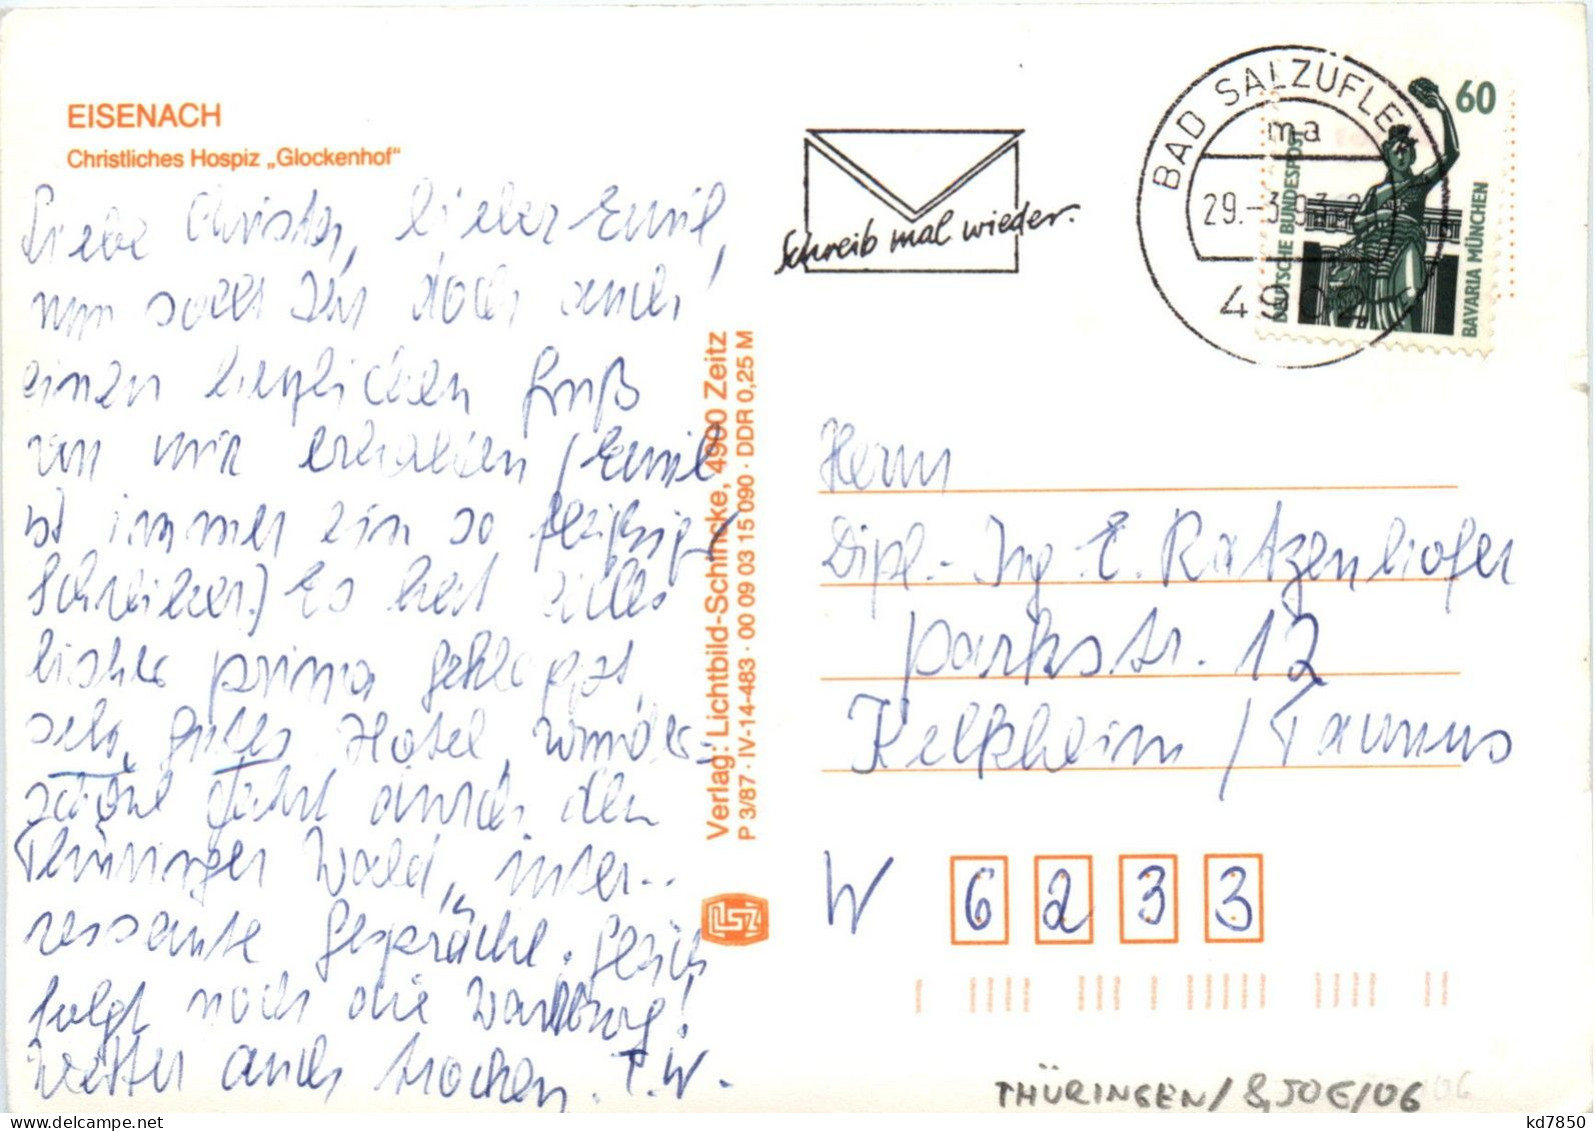 EISENACH
Christliches Hospiz „Glockenhof"
Liebe Christa, lieber Emil,
nun sollt Ihr doch auch
einen herzlichen Gruß
von mir erhalten (Emil
ist immer ein so fleißiger
Schreiber.) Es hat alles
bisher prima geklappt,
sehr gutes Hotel, wunder-
schöne Fahrt durch den
Thüringer Wald, inter-
ressante Gespräche. Gleich
folgt noch die Wartburg!
Wetter auch trocken. T.W.
Verlag: Lichtbild-Schincke, 4900 Zeitz
P 3/87 · IV-14-483 · 00 09 03 15 090 · DDR 0,25 M
Schreib mal wieder.
BAD SALZUFLEN
ma
29.-3.93
4902
60
DEUTSCHE BUNDESPOST
BAVARIA MÜNCHEN
Herrn
Dipl.-Ing E. Ratzenhofer
Parkstr. 12
Kelkheim / Taunus
W 6233
THÜRINGEN / & JOE/06
kd7850